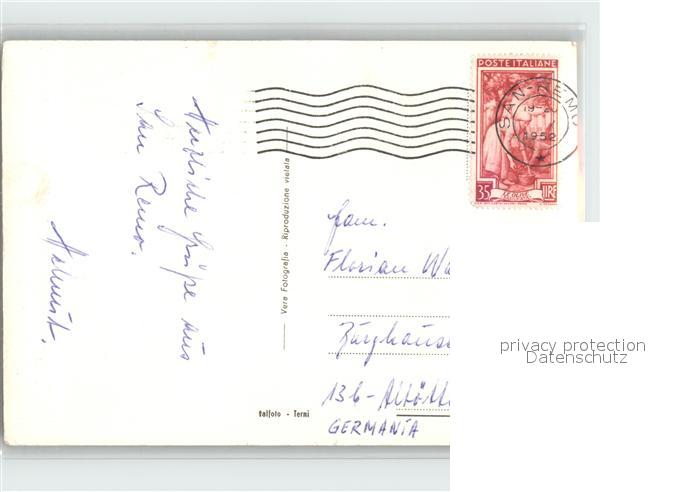 POSTE ITALIANE
SAN-REMO
19-
1952
35 LIRE
Herzliche Grüße aus
San Remo.
Helmut.
Vera Fotografia - Riproduzione vietata
Fam.
Florian Wa
Burghaus
13b-Altött
GERMANIA
Italfoto - Terni
privacy protection
Datenschutz